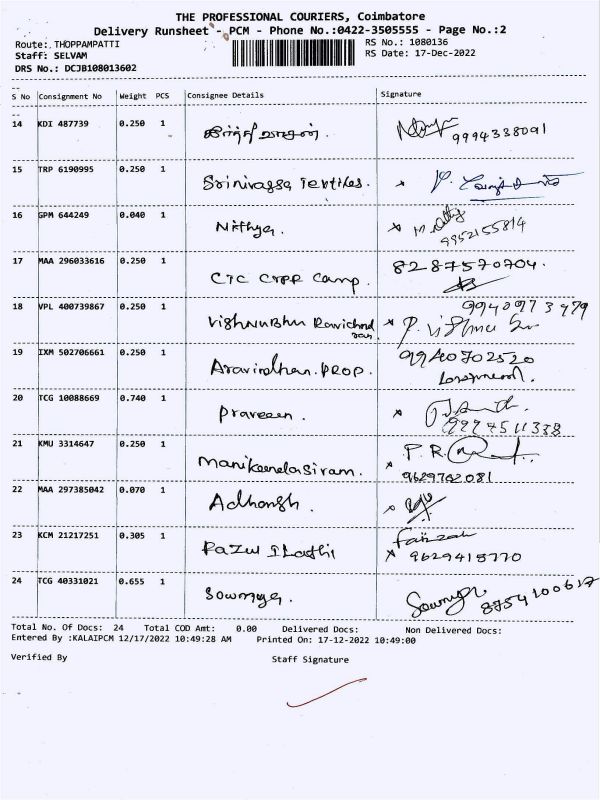 THE PROFESSIONAL COURIERS, Coimbatore
Delivery Runsheet - PCM - Phone No.:0422-3505555 - Page No.:2
Route: THOPPAMPATTI
RS No.: 1080136
Staff: SELVAM
RS Date: 17-Dec-2022
DRS No.: DCJB108013602
S No Consignment No Weight PCS Consignee Details Signature
14 KDI 487739 0.250 1
9994338091
15 TRP 6190995 0.250 1 Srinivassa Textiles.
16 GPM 644249 0.040 1 Nithya. 9952155814
17 MAA 296033616 0.250 1 CTC CRPF Camp. 8287570704.
18 VPL 400739867 0.250 1 Vishnubhu Ravichand 9940973479
ran
19 IXM 502706661 0.250 1 Aravindhan. PROP. 9940702520
20 TCG 10088669 0.740 1 Praveen. 9994511338
21 KMU 3314647 0.250 1 P.R.
9629702081
22 MAA 297385042 0.070 1
23 KCM 21217251 0.305 1 Faizzah
9629415770
24 TCG 40331021 0.655 1 Sowmya. Sowmya 8754100617
Total No. Of Docs: 24 Total COD Amt: 0.00 Delivered Docs: Non Delivered Docs:
Entered By :KALAIPCM 12/17/2022 10:49:28 AM Printed On: 17-12-2022 10:49:00
Verified By Staff Signature